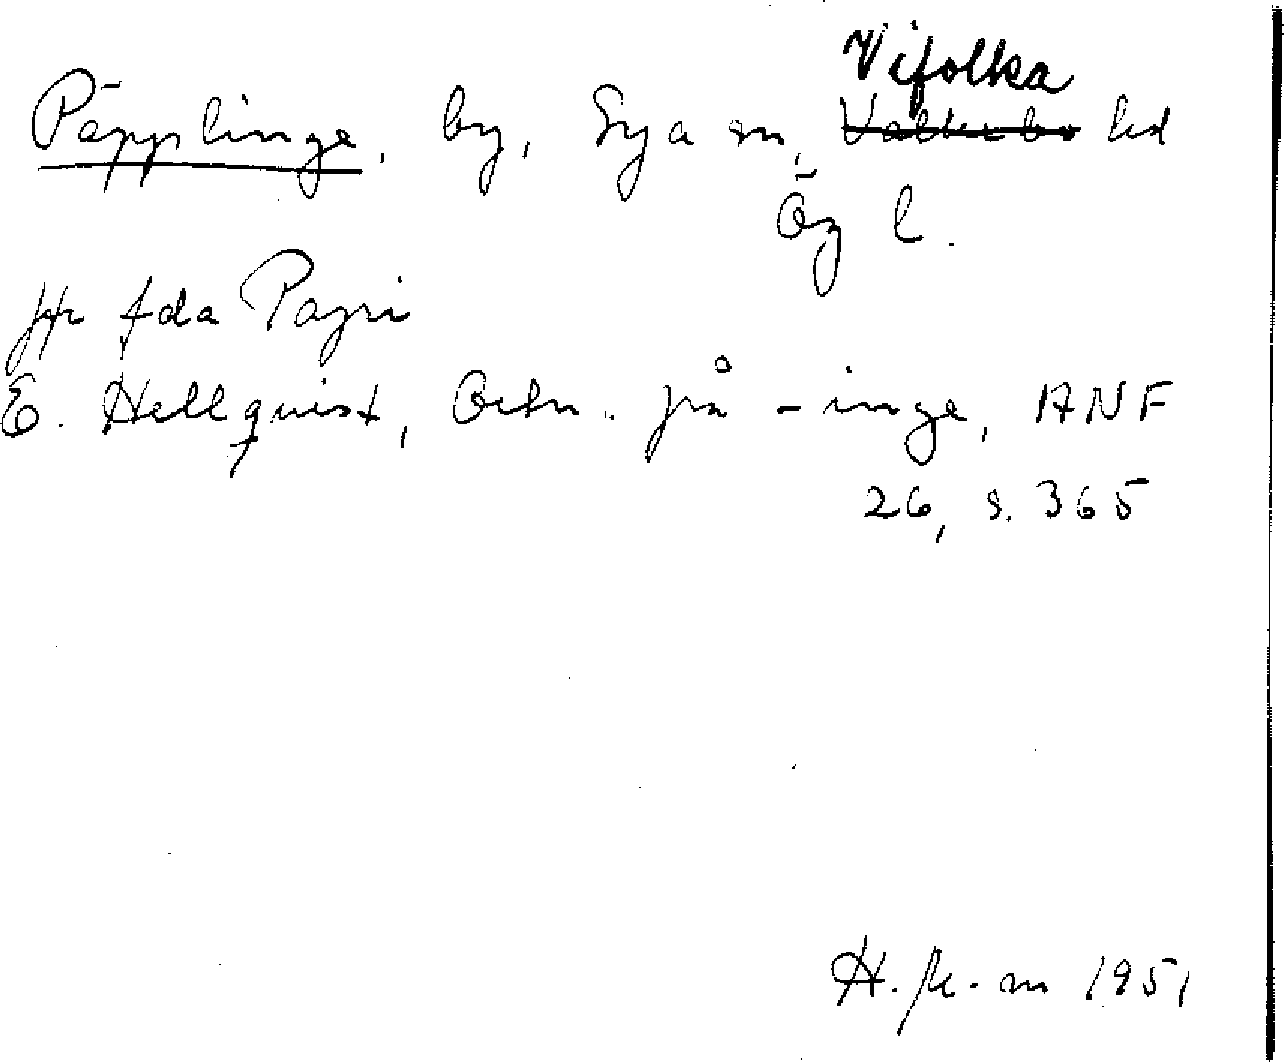 Päpplinge, by, Sya sn, Vifolka hd
Ög l.
jfr fda Papri
E. Hellquist, Ortn. på -inge, ANF
26, s. 365
1951